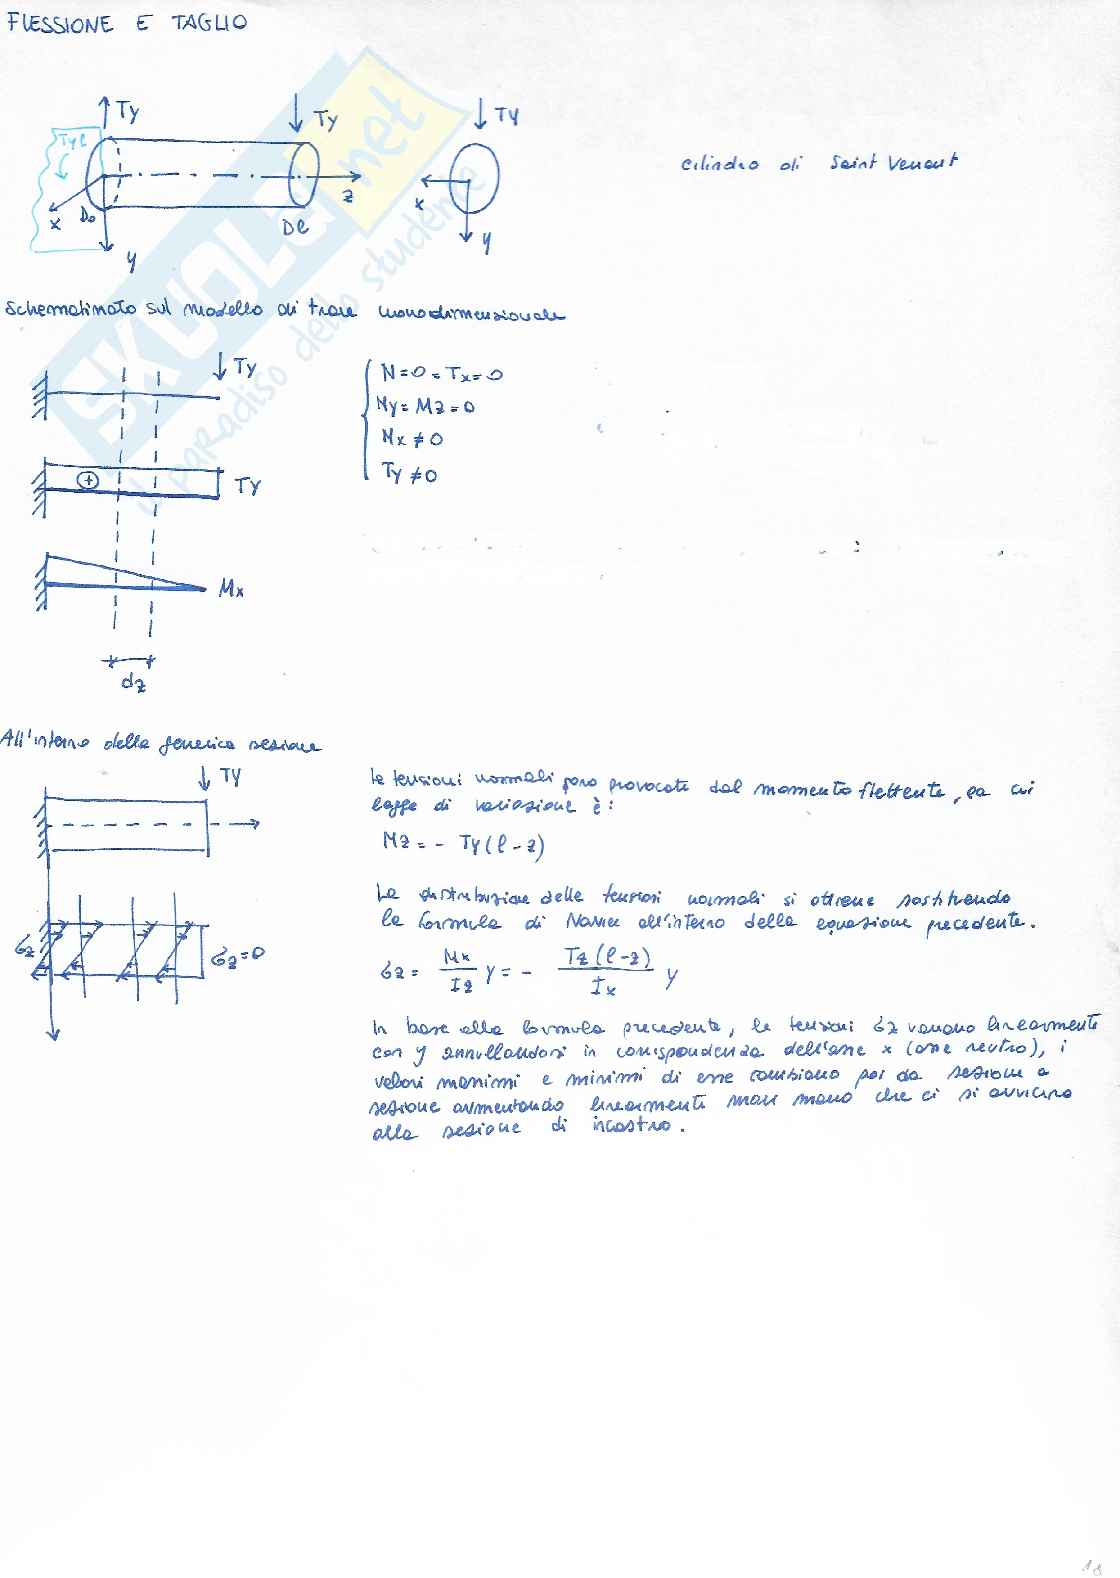 FLESSIONE E TAGLIO
Ty
Ty
Ty
Tyl
cilindro di Saint Venant
z
x
Do
Dl
x
y
y
Schematizzato sul modello di trave monodimensionale
Ty
N=0=Tx=0
My=Mz=0
Mx≠0
Ty≠0
+
Ty
Mx
dz
All'interno della generica sezione
Ty
le tensioni normali sono provocate dal momento flettente, la cui
legge di variazione è:
Mz = - Ty(l-z)
La distribuzione delle tensioni normali si ottiene sostituendo
la formula di Navier all'interno della equazione precedente.
σz
σz=0
σz = Mx/Iz y = - Tz(l-z)/Ix y
In base alla formula precedente, le tensioni σz variano linearmente
con y annullandosi in corrispondenza dell'asse x (asse neutro), i
valori massimi e minimi di esse cambiano poi da sezione a
sezione aumentando linearmente man mano che ci si avvicina
alla sezione di incastro.
18
SKUOLA.net
il paradiso dello studente